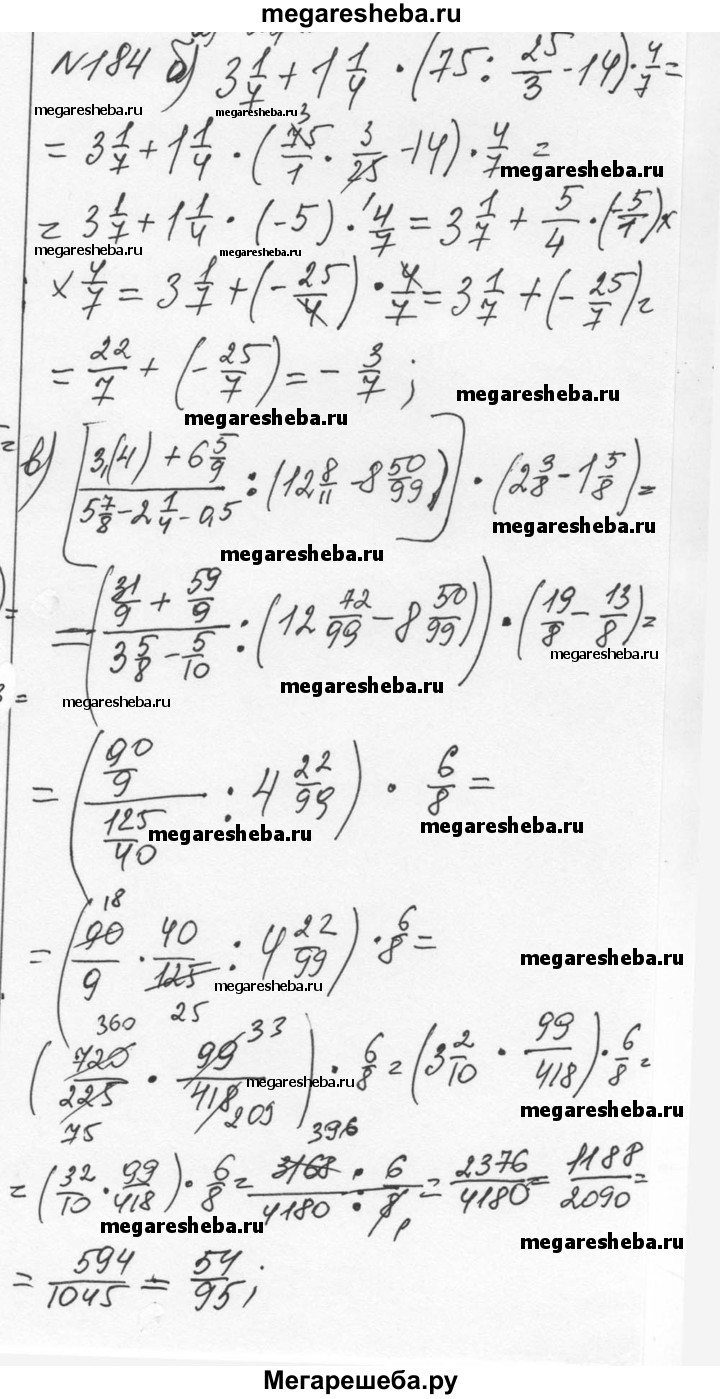 megaresheba.ru
N184 б) 3 1/7 + 1 1/4 · (75 : 25/3 - 14) · 4/7 =
megaresheba.ru megaresheba.ru
= 3 1/7 + 1 1/4 · (75/1 · 3/25 - 14) · 4/7 =
3 1
megaresheba.ru
= 3 1/7 + 1 1/4 · (-5) · 4/7 = 3 1/7 + 5/4 · (-5/1) ×
megaresheba.ru megaresheba.ru
× 4/7 = 3 1/7 + (- 25/4) · 4/7 = 3 1/7 + (- 25/7) =
= 22/7 + (- 25/7) = - 3/7 ;
megaresheba.ru
megaresheba.ru
в) [ (3,(4) + 6 5/9)/(5 7/8 - 2 1/4 - 0,5) : (12 8/11 - 8 50/99) ] · (2 3/8 - 1 5/8) =
megaresheba.ru
megaresheba.ru
= ( (31/9 + 59/9)/(3 5/8 - 5/10) : (12 72/99 - 8 50/99) ) · (19/8 - 13/8) =
megaresheba.ru
megaresheba.ru
megaresheba.ru
= ( (90/9)/(125/40) : 4 22/99 ) · 6/8 =
megaresheba.ru
megaresheba.ru
18
= ( 90/9 · 40/125 : 4 22/99 ) · 6/8 =
25
megaresheba.ru
megaresheba.ru
360 33
( 720/225 · 99/418 ) · 6/8 = (3 2/10 · 99/418) · 6/8 =
75 209
megaresheba.ru
megaresheba.ru
396
= (32/10 · 99/418) · 6/8 = (3168 · 6)/(4180 · 8) = 2376/4180 = 1188/2090 =
1
megaresheba.ru
megaresheba.ru
= 594/1045 = 54/95 ;
Мегарешеба.ру